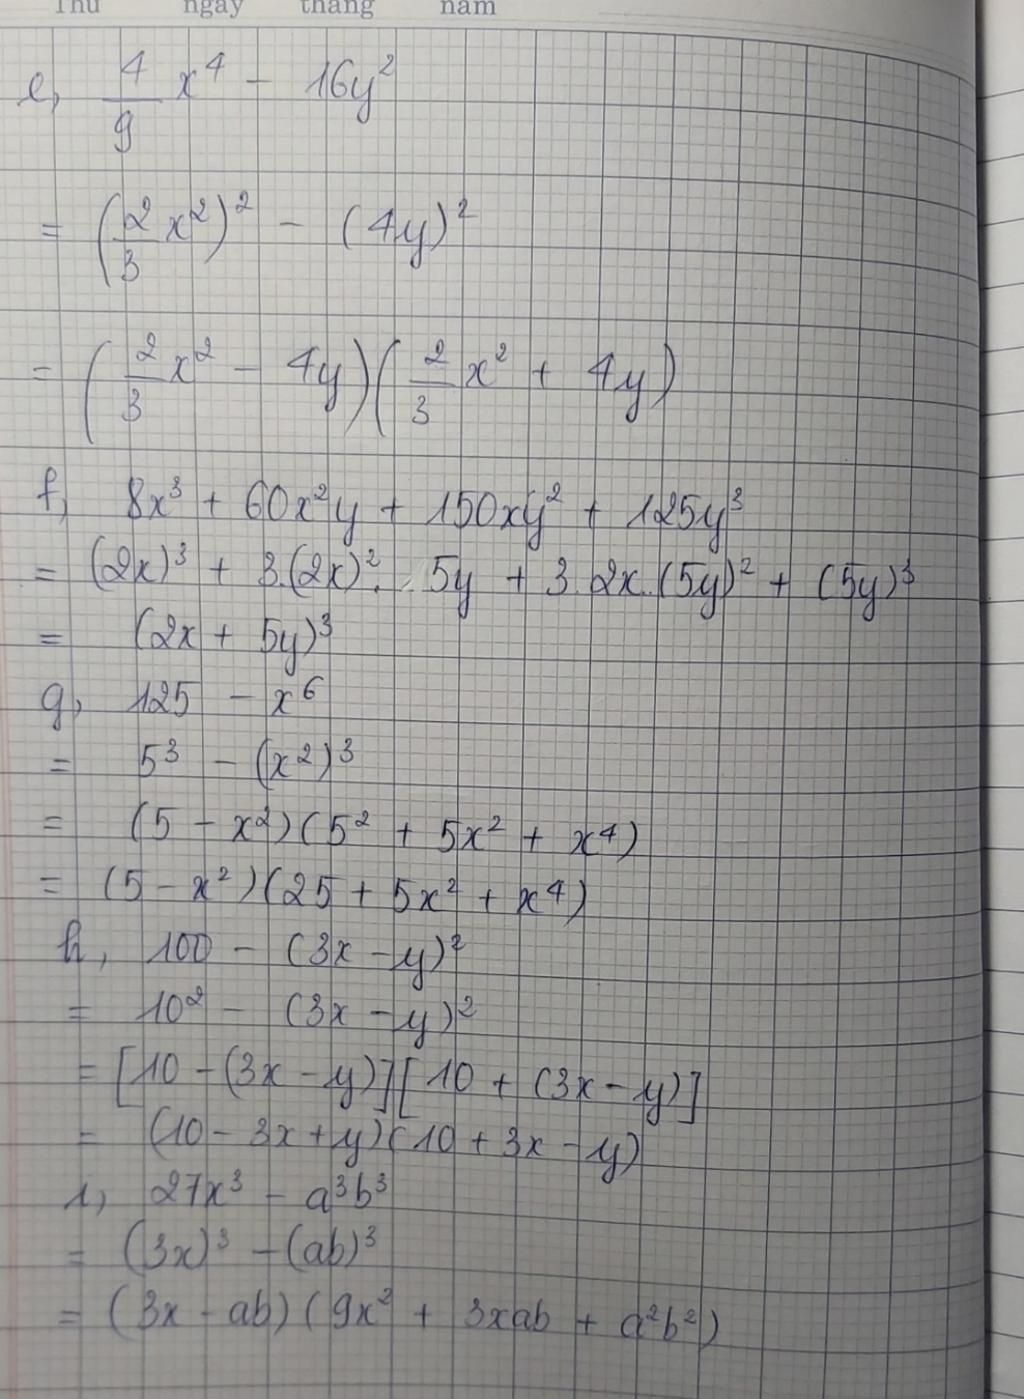 Thứ ngày tháng năm
e, 4/9 x⁴ - 16y²
= (2/3 x²)² - (4y)²
= (2/3 x² - 4y)(2/3 x² + 4y)
f, 8x³ + 60x²y + 150xy² + 125y³
= (2x)³ + 3.(2x)². 5y + 3.2x.(5y)² + (5y)³
= (2x + 5y)³
g, 125 - x⁶
= 5³ - (x²)³
= (5 - x²)(5² + 5x² + x⁴)
= (5 - x²)(25 + 5x² + x⁴)
h, 100 - (3x - y)²
= 10² - (3x - y)²
= [10 - (3x - y)][10 + (3x - y)]
= (10 - 3x + y)(10 + 3x - y)
i, 27x³ - a³b³
= (3x)³ - (ab)³
= (3x - ab)(9x² + 3xab + a²b²)